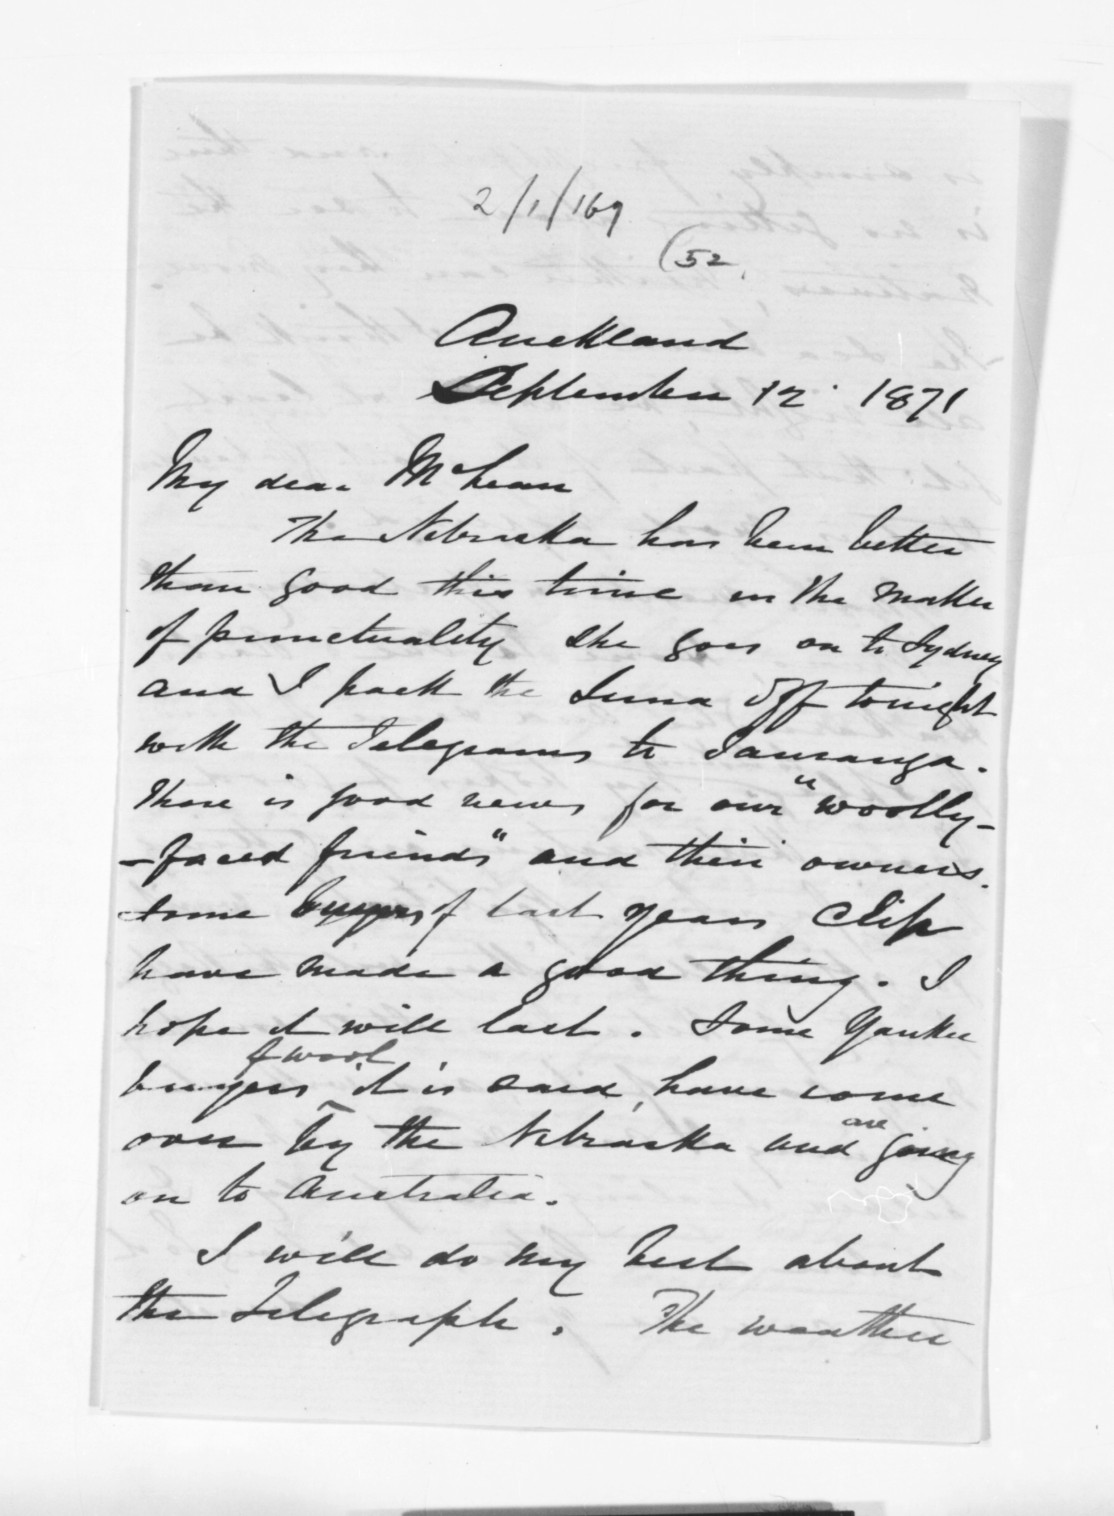 2/1/169
(52.
Auckland
September 12 1871
My dear McLean
The Nebraska has been better
than good this time in the matter
of punctuality she goes on to Sydney
and I pack the Luna off tonight
with the Telegrams to Tauranga.
There is good news for our "woolly-
-faced friends" and their owners.
Some buyers of last years clip
have made a good thing. I
hope it will last. Some Yankee
buyers of wool it is said, have come
over by the Nebraska and are going
on to Australia.
I will do my best about
the Telegraph. The weather